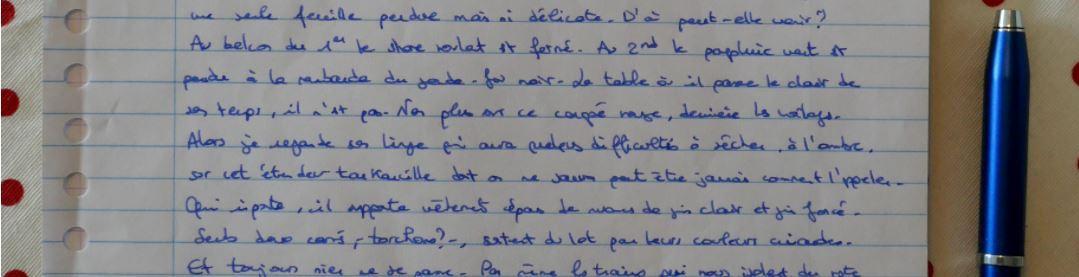 une seule feuille perdue mais si délicate. D'où peut-elle venir?
Au balcon du 1er le store roulant est fermé. Au 2nd le parapluie vert est
pendu à la rambarde du garde-fou noir. La table où il passe le clair de
son temps, il n'y est pas. Non plus sur ce canapé rouge, derrière les voilages.
Alors je regarde son linge qui aura quelques difficultés à sécher, à l'ombre,
sur cet étendoir dont on ne saura peut être jamais comment l'appeler.
Qu'importe, il apporte vêtements épars de nuances de gris clair et gris foncé.
Seuls deux carrés, - torchons? -, sortent du lot par leurs couleurs criardes.
Et toujours rien ne se passe. Pas même les trains qui nous isolent du reste